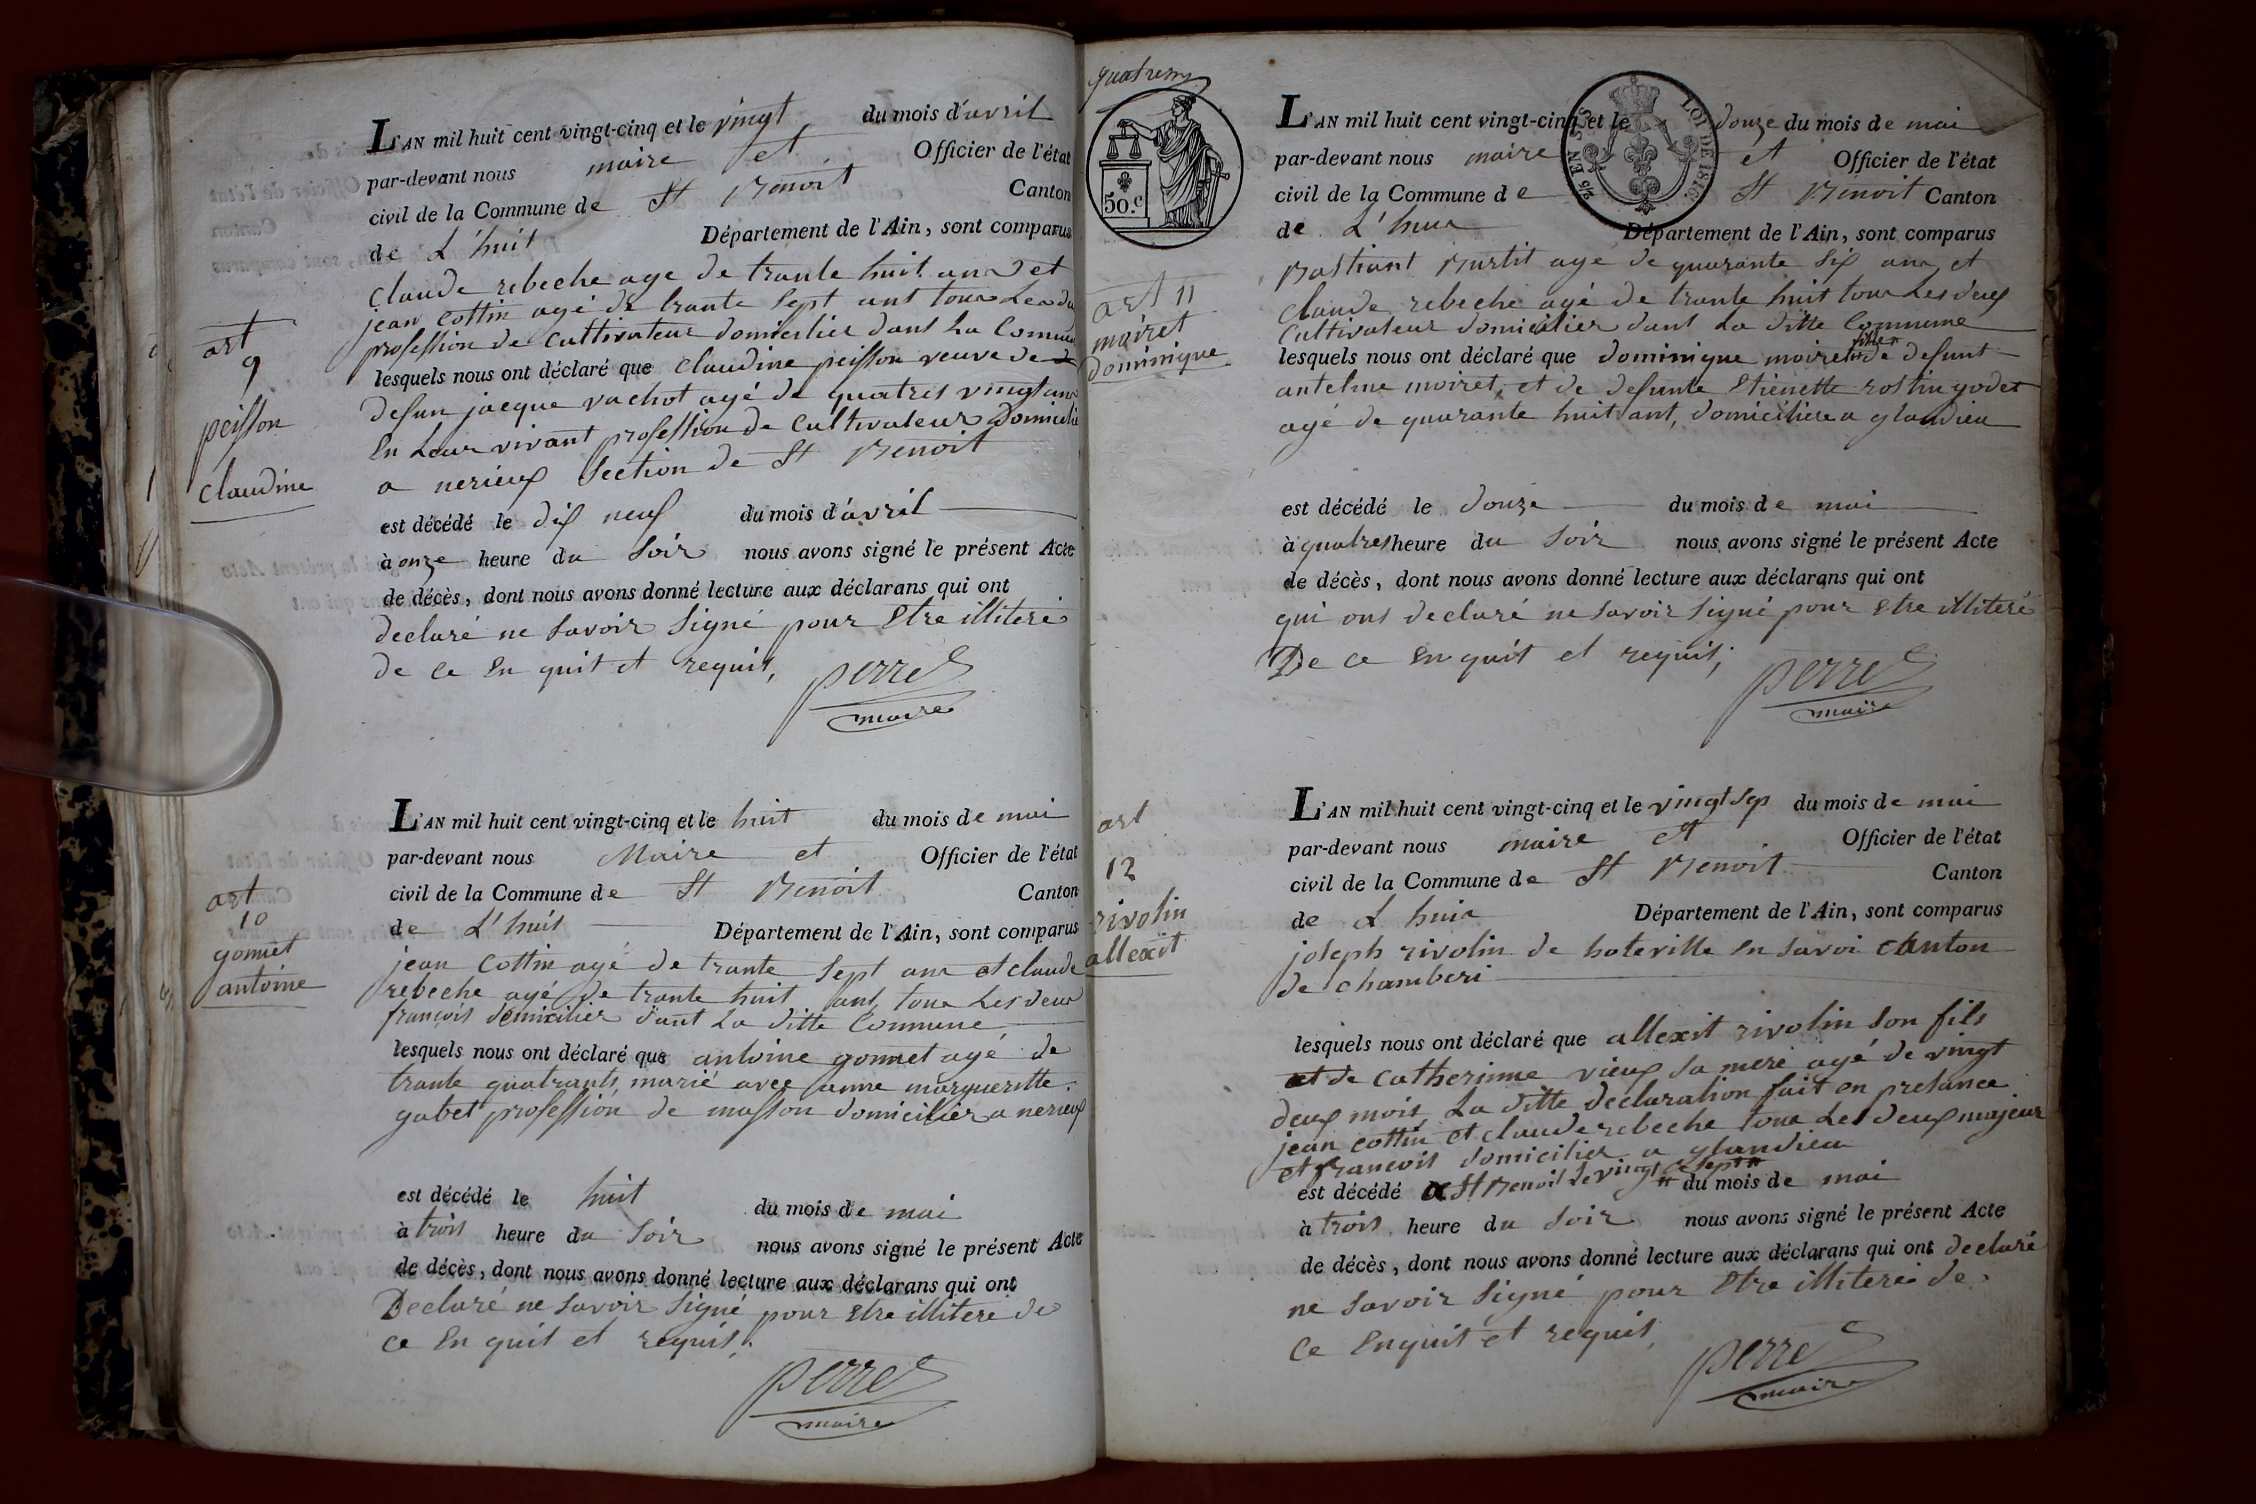 art
9
peisson
claudine
L'AN mil huit cent vingt-cinq et le vingt du mois d'avril
par-devant nous maire et Officier de l'état
civil de la Commune de St Benoit Canton
de L'huit Département de l'Ain, sont comparus
claude rebeche age de trante huit ans et
jean cottin agé de trante sept ans tous Les du
profession de Cultivateur domicilier dans La Comune
lesquels nous ont déclaré que claudine peisson veuve de
defun jacque vachot agé de quatres vingt ans
En Leur vivant profession de Cultivateur Domicilié
a nerieux Section de St Benoit
est décédé le dix neuf du mois d'avril
à onze heure du Soir nous avons signé le présent Acte
de décès, dont nous avons donné lecture aux déclarans qui ont
declaré ne Savoir Signé pour Etre illiteré
de ce En quit et requis,
perret
maire
art
10
gonnet
antoine
L'AN mil huit cent vingt-cinq et le huit du mois de mai
par-devant nous Maire et Officier de l'état
civil de la Commune de St Benoit Canton
de L'huit Département de l'Ain, sont comparus
jean Cottin agé de trante Sept ans et claude
rebeche agé de trante huit ans tous Les deux
françois domicilier dant La ditte Commune
lesquels nous ont déclaré que antoine gonnet agé de
trante quatrants, marié avec anne margueritte
gabet profession de masson domicilier a nerieux
est décédé le huit du mois de mai
à trois heure du Soir nous avons signé le présent Acte
de décès, dont nous avons donné lecture aux déclarans qui ont
Declaré ne Savoir Signé pour Etre illiteré de
ce En quit et requis,
perret
maire
quatrem
50.c
24 EN SUS
LOI DE 1816
art 11
moiret
dominique
L'AN mil huit cent vingt-cinq et le douze du mois de mai
par-devant nous maire et Officier de l'état
civil de la Commune de St Benoit Canton
de L'huis Département de l'Ain, sont comparus
Bastiant Burtit age de quarante Six ans et
Claude rebeche agé de trante huit tous Les deux
Cultivateur domicilier dant La ditte Commune
lesquels nous ont déclaré que dominique moiret fille de defunt
antelme moiret, et de defunte Etienette rostin godet
agé de quarante huit ant, domiciliere a glandieu
est décédé le douze du mois de mai
à quatres heure du Soir nous avons signé le présent Acte
de décès, dont nous avons donné lecture aux déclarans qui ont
qui ons declaré ne Savoir Signé pour Etre illiteré
De ce En quit et requis,
perret
maire
art
12
rivolin
allexit
L'AN mil huit cent vingt-cinq et le vingt Sep du mois de mai
par-devant nous maire et Officier de l'état
civil de la Commune de St Benoit Canton
de L'huis Département de l'Ain, sont comparus
joseph rivolin de hoteville En Savoi Canton
de chamberi
lesquels nous ont déclaré que allexit rivolin Son fils
et de Catherinne vieux Sa mere agé de vingt
deux mois La ditte declaration fait en presance
jean cottin et claude rebeche tous Les deux majeur
et francois domicilier a glandieu
est décédé a St Benoit Le vingt Sept du mois de mai
à trois heure du Soir nous avons signé le présent Acte
de décès, dont nous avons donné lecture aux déclarans qui ont declaré
ne Savoir Signé pour Etre illiteré de
Ce En quit et requis,
perret
maire